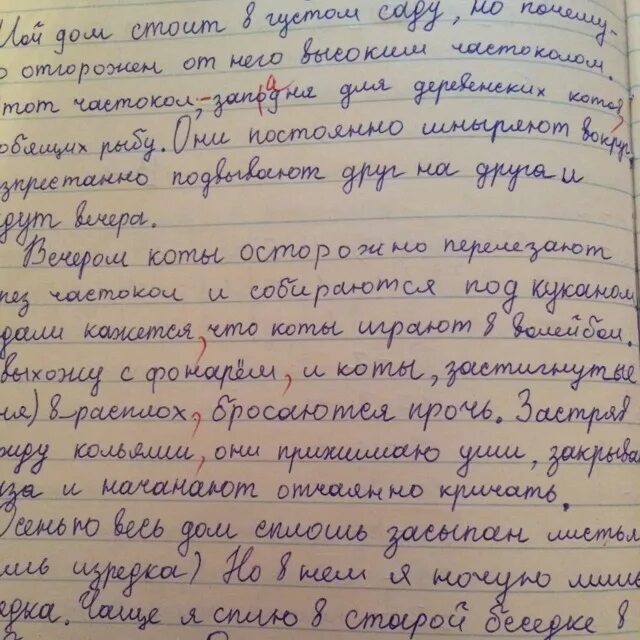 Мой дом стоит в густом саду, но почему-
о отгорожен от него высоким частоколом.
тот частокол,-западня для деревенских котов,
юбящих рыбу. Они постоянно шныряют вокруг,
зпрестанно подвывают друг на друга и
дут вечера.
Вечером коты осторожно перелезают
рез частокол и собираются под куканом
дали кажется, что коты играют в волейбол.
выхожу с фонарём, и коты, застигнутые
ня) в-расплох, бросаются прочь. Застряв
жду кольями, они прижимаю уши, закрыва
аза и начанают отчаянно кричать.
Осенью весь дом сплошь засыпан листья
ишь изредка) Но в нем я ночую лишь
едка. Чаще я сплю в старой беседке в